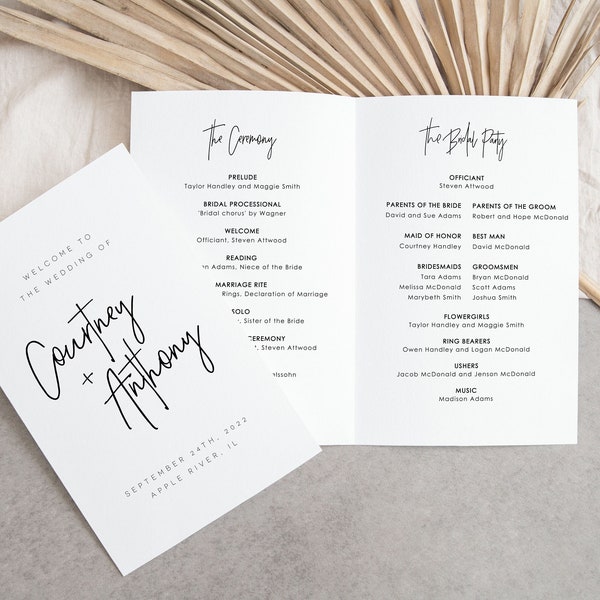 WELCOME TO
THE WEDDING OF
Courtney
+
Anthony
SEPTEMBER 24TH, 2022
APPLE RIVER, IL
The Ceremony
PRELUDE
Taylor Handley and Maggie Smith
BRIDAL PROCESSIONAL
'Bridal chorus' by Wagner
WELCOME
Officiant, Steven Attwood
READING
Adams, Niece of the Bride
MARRIAGE RITE
Rings, Declaration of Marriage
SOLO
, Sister of the Bride
CEREMONY
, Steven Attwood
The Bridal Party
OFFICIANT
Steven Attwood
PARENTS OF THE BRIDE
David and Sue Adams
PARENTS OF THE GROOM
Robert and Hope McDonald
MAID OF HONOR
Courtney Handley
BEST MAN
David McDonald
BRIDESMAIDS
Tara Adams
Melissa McDonald
Marybeth Smith
GROOMSMEN
Bryan McDonald
Scott Adams
Joshua Smith
FLOWERGIRLS
Taylor Handley and Maggie Smith
RING BEARERS
Owen Handley and Logan McDonald
USHERS
Jacob McDonald and Jenson McDonald
MUSIC
Madison Adams